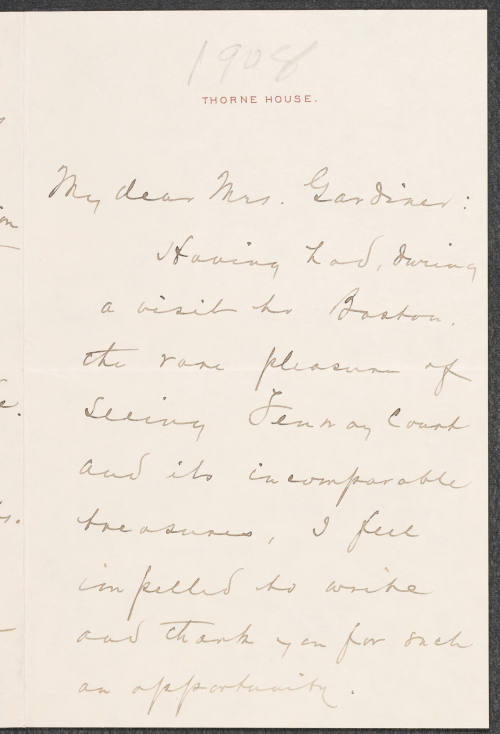 1908
THORNE HOUSE.
My dear Mrs. Gardiner:
Having had, during
a visit to Boston,
the rare pleasure of
seeing Fenway Court
and its incomparable
treasures, I feel
impelled to write
and thank you for such
an opportunity.